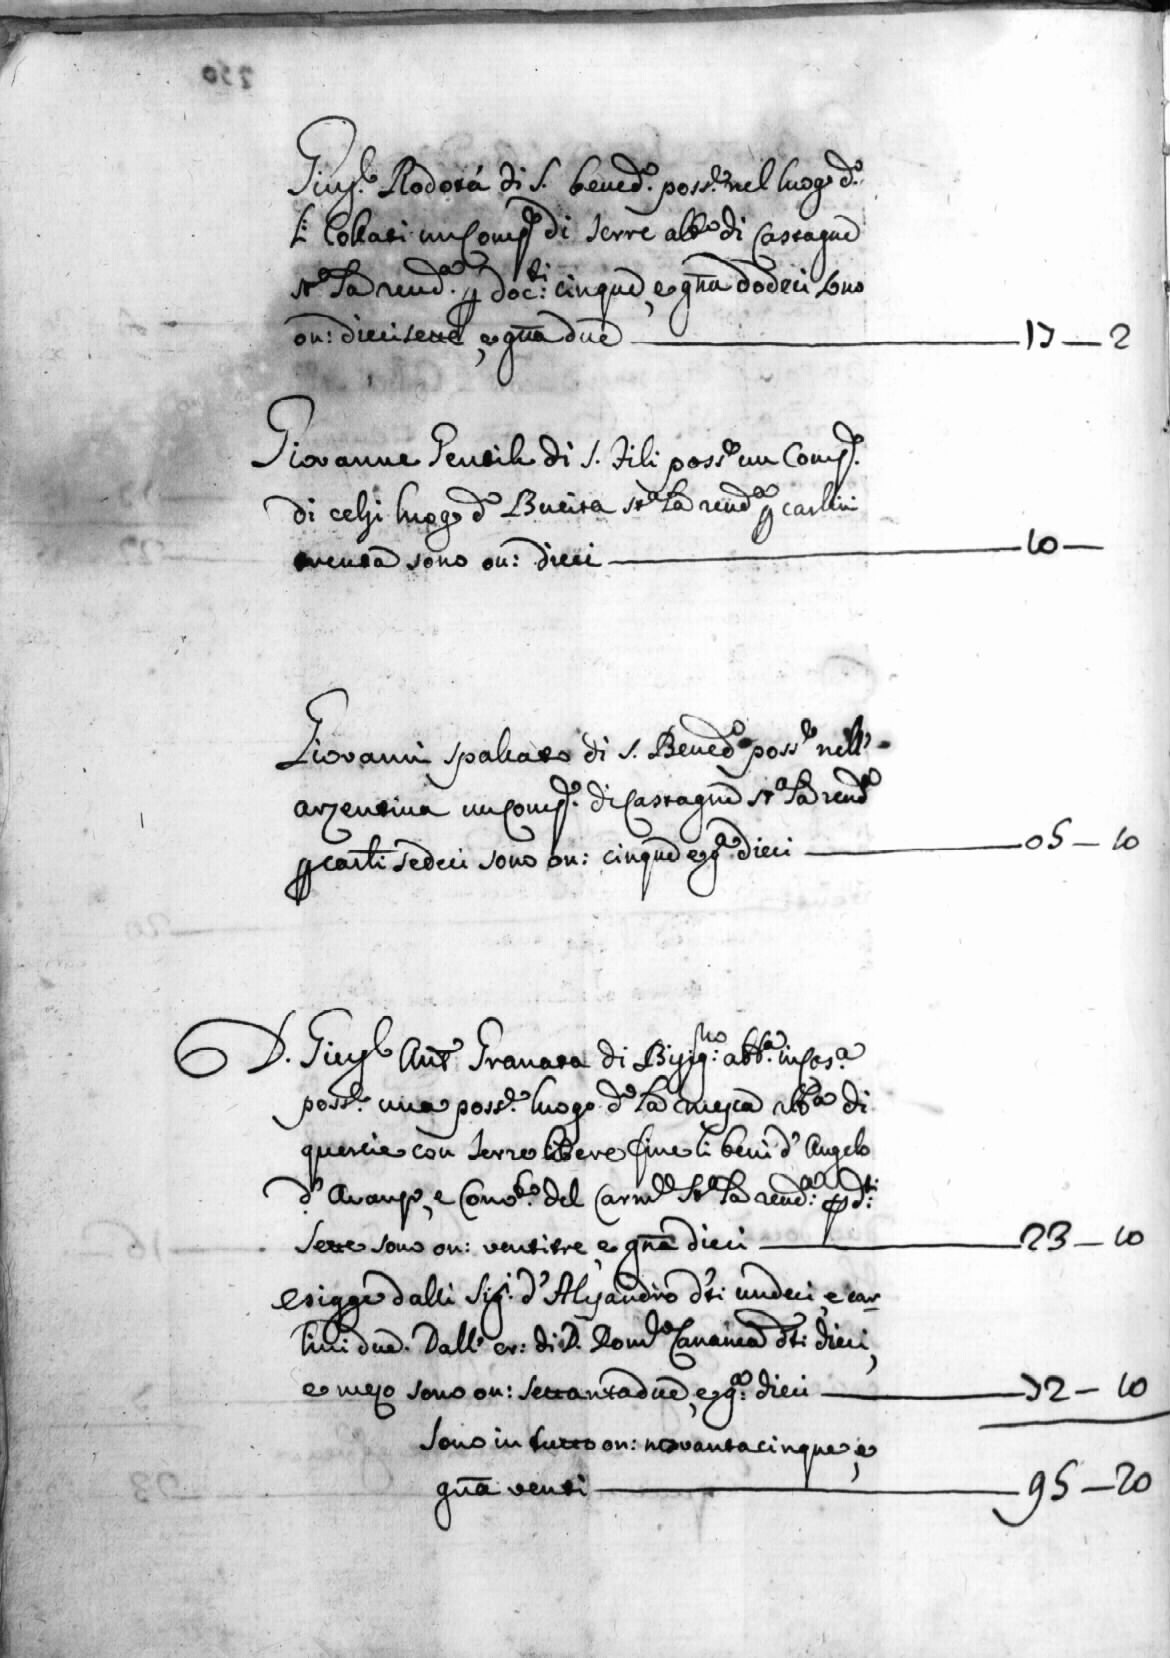 Gius.e Rodotà di S. Bened.o poss.e nel luogo d.o
li Collati un Comp.o di terre alb.o di Castagne
st.a la rend.a p doc.ti: cinque, e gna dodeci sono
on: diecisette, e gna due 17 — 2
Giovanne Gentile di S. Fili poss.e un Comp.o
di celsi luogo d.o Bucita st.a la rend.a p carlini
trenta sono on: dieci 10 —
Giovanni Spaltato di S. Bened.o poss.e nell'
arzentina un Comp.o di Castagne st.a la rend.a
p carli sedeci sono on: cinque e g.a dieci 05 — 10
D. Gius.e Ant.o Granata di abb.a in Cos.a
poss.e una poss.e luogo d.o la alb.a di
quercie con terre libere fine li beni d' Angelo
d' e Conv.to del Carm.e St.a la rend.a: p d.ti:
sette sono on: ventitre, e gna dieci 23 — 10
esigge dalli Sig.i d' Alesandro d.ti undeci, e car-
lini due. Dall' er: di D. Dom.co d.ti dieci,
e mezo sono on: settantadue, e g.a: dieci 72 — 10
Sono in tutto on: novantacinque, e
gna venti 95 — 20